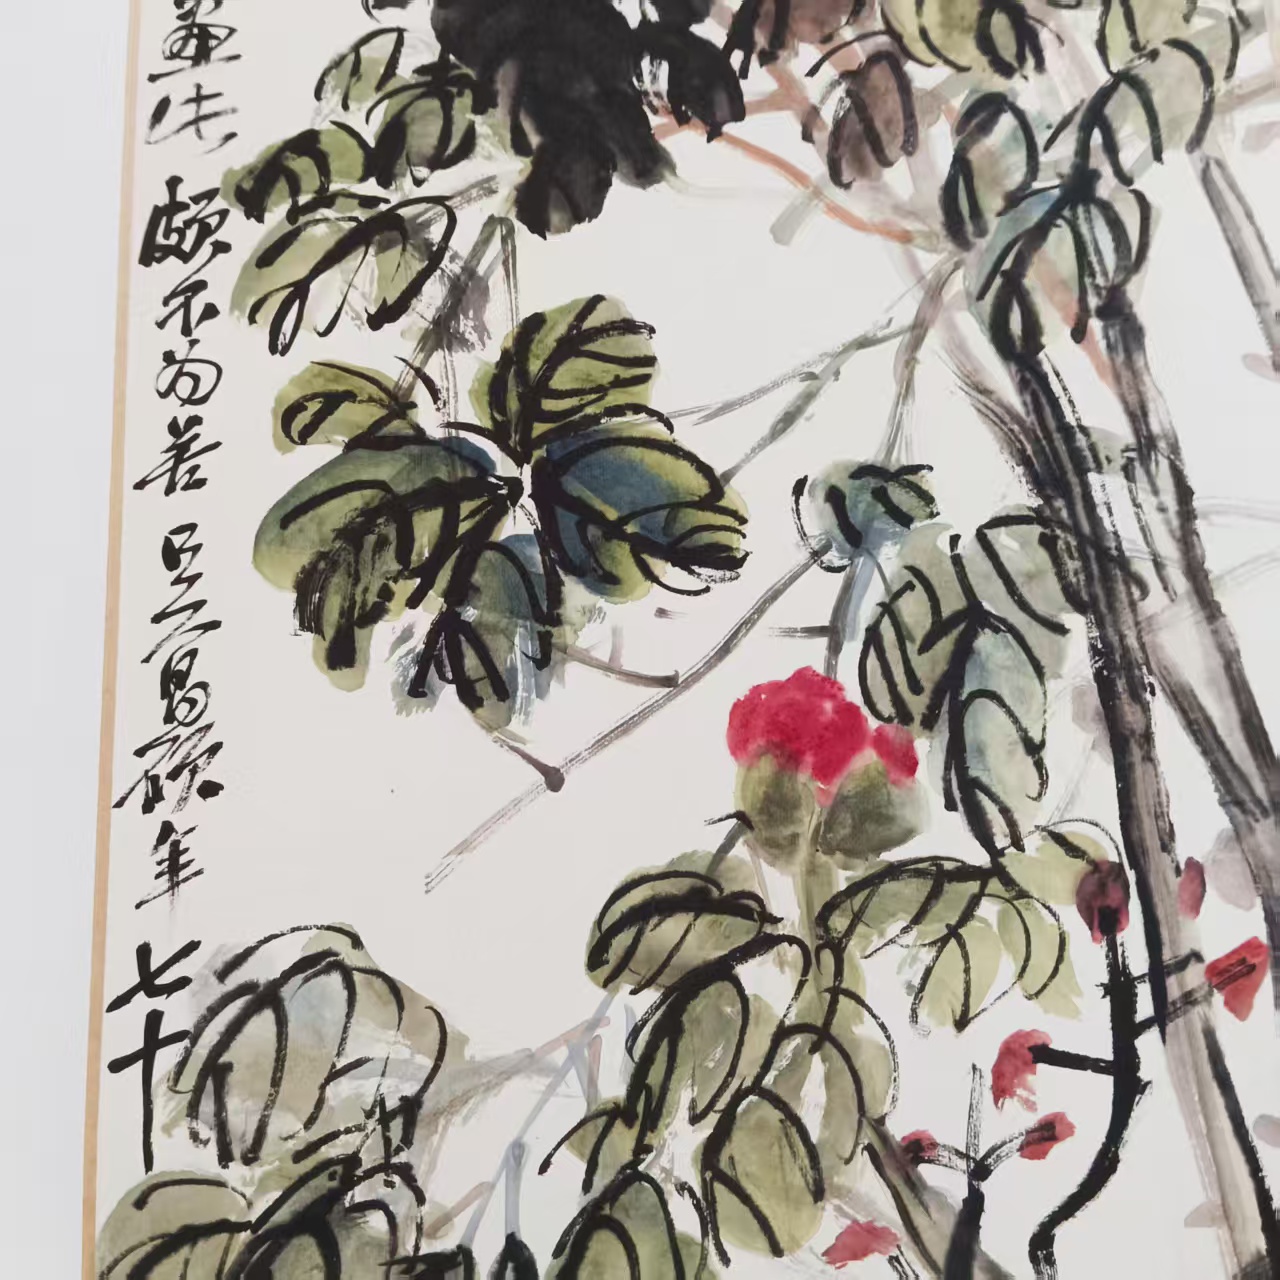 畫法 頗不為善 吳昌碩年七十